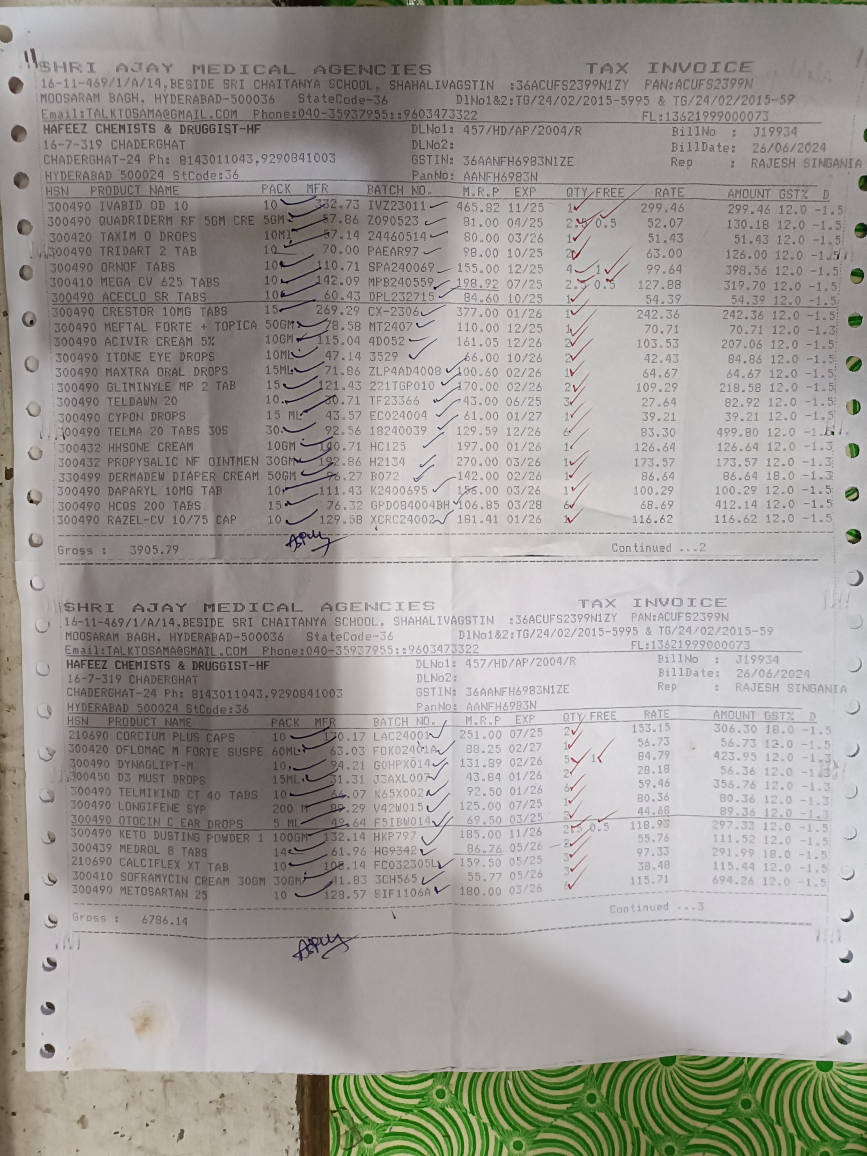 SHRI AJAY MEDICAL AGENCIES TAX INVOICE
16-11-469/1/A/14,BESIDE SRI CHAITANYA SCHOOL, SHAHALIVAGSTIN :36ACUFS2399N1ZY PAN:ACUFS2399N
MOOSARAM BAGH, HYDERABAD-500036 StateCode-36 DlNo1&2:TG/24/02/2015-5995 & TG/24/02/2015-59
Email:TALKTOSAMA@GMAIL.COM Phone:040-35937955::9603473322 FL:13621999000073
HAFEEZ CHEMISTS & DRUGGIST-HF DLNo1: 457/HD/AP/2004/R BillNo : J19934
16-7-319 CHADERGHAT DLNo2: BillDate: 26/06/2024
CHADERGHAT-24 Ph: 8143011043,9290841003 GSTIN: 36AANFH6983N1ZE Rep : RAJESH SINGANIA
HYDERABAD 500024 StCode:36 PanNo: AANFH6983N
HSN PRODUCT NAME PACK MFR BATCH NO. M.R.P EXP QTY FREE RATE AMOUNT GST% D
300490 IVABID OD 10 10 332.73 IVZ23011 465.82 11/25 1 299.46 299.46 12.0 -1.5
300490 QUADRIDERM RF 5GM CRE 5GM 57.86 Z090523 81.00 04/25 2.5 0.5 52.07 130.18 12.0 -1.5
300420 TAXIM O DROPS 10ML 57.14 24460514 80.00 03/26 1 51.43 51.43 12.0 -1.5
300490 TRIDART 2 TAB 10 70.00 PAEAR97 98.00 10/25 2 63.00 126.00 12.0 -1.5
300490 ORNOF TABS 10 110.71 SPA240069 155.00 12/25 4 1 99.64 398.56 12.0 -1.5
300410 MEGA CV 625 TABS 10 142.09 MPB240559 198.92 07/25 2.5 0.5 127.88 319.70 12.0 -1.5
300490 ACECLO SR TABS 10 60.43 DPL232715 84.60 10/25 1 54.39 54.39 12.0 -1.5
300490 CRESTOR 10MG TABS 15 269.29 CX-2306 377.00 01/26 1 242.36 242.36 12.0 -1.5
300490 MEFTAL FORTE + TOPICA 50GM 78.58 MT2407 110.00 12/25 1 70.71 70.71 12.0 -1.3
300490 ACIVIR CREAM 5% 10GM 115.04 4D052 161.05 12/26 2 103.53 207.06 12.0 -1.5
300490 ITONE EYE DROPS 10ML 47.14 3529 66.00 10/26 2 42.43 84.86 12.0 -1.5
300490 MAXTRA ORAL DROPS 15ML 71.86 ZLP4AD4008 100.60 02/26 1 64.67 64.67 12.0 -1.5
300490 GLIMINYLE MP 2 TAB 15 121.43 221TGP010 170.00 02/26 2 109.29 218.58 12.0 -1.5
300490 TELDAWN 20 10 30.71 TF23366 43.00 06/25 3 27.64 82.92 12.0 -1.5
300490 CYPON DROPS 15 ML 43.57 EC024004 61.00 01/27 1 39.21 39.21 12.0 -1.5
300490 TELMA 20 TABS 30S 30 92.56 18240039 129.59 12/26 6 83.30 499.80 12.0 -1.5
300432 HHSONE CREAM 10GM 140.71 HC125 197.00 01/26 1 126.64 126.64 12.0 -1.3
300432 PROPYSALIC NF OINTMEN 30GM 192.86 H2134 270.00 03/26 1 173.57 173.57 12.0 -1.3
330499 DERMADEW DIAPER CREAM 50GM 96.27 B072 142.00 02/26 1 86.64 86.64 18.0 -1.3
300490 DAPARYL 10MG TAB 10 111.43 K2400695 156.00 03/26 1 100.29 100.29 12.0 -1.5
300490 HCQS 200 TABS 15 76.32 GPD084004BH 106.85 03/28 6 68.69 412.14 12.0 -1.5
300490 RAZEL-CV 10/75 CAP 10 129.58 XCRC24002 181.41 01/26 1 116.62 116.62 12.0 -1.5
Gross : 3905.79 Continued ...2
SHRI AJAY MEDICAL AGENCIES TAX INVOICE
16-11-469/1/A/14,BESIDE SRI CHAITANYA SCHOOL, SHAHALIVAGSTIN :36ACUFS2399N1ZY PAN:ACUFS2399N
MOOSARAM BAGH, HYDERABAD-500036 StateCode-36 DlNo1&2:TG/24/02/2015-5995 & TG/24/02/2015-59
Email:TALKTOSAMA@GMAIL.COM Phone:040-35937955::9603473322 FL:13621999000073
HAFEEZ CHEMISTS & DRUGGIST-HF DLNo1: 457/HD/AP/2004/R BillNo : J19934
16-7-319 CHADERGHAT DLNo2: BillDate: 26/06/2024
CHADERGHAT-24 Ph: 8143011043,9290841003 GSTIN: 36AANFH6983N1ZE Rep : RAJESH SINGANIA
HYDERABAD 500024 StCode:36 PanNo: AANFH6983N
HSN PRODUCT NAME PACK MFR BATCH NO. M.R.P EXP QTY FREE RATE AMOUNT GST% D
210690 CORCIUM PLUS CAPS 10 170.17 LAC24001 251.00 07/25 2 153.15 306.30 18.0 -1.5
300420 OFLOMAC M FORTE SUSPE 60ML 63.03 FDK02401A 88.25 02/27 1 56.73 56.73 12.0 -1.5
300490 DYNAGLIPT-M 10 94.21 GOHPX014 131.89 02/26 5 1 84.79 423.95 12.0 -1.5
300450 D3 MUST DROPS 15ML 31.31 J3AXL007 43.84 01/26 2 28.18 56.36 12.0 -1.3
300490 TELMIKIND CT 40 TABS 10 66.07 K65X002 92.50 01/26 6 59.46 356.76 12.0 -1.3
300490 LONGIFENE SYP 200 M 89.29 V42W015 125.00 07/25 1 80.36 80.36 12.0 -1.3
300490 OTOCIN C EAR DROPS 5 ML 49.64 F5IBW014 69.50 03/25 2 44.68 89.36 12.0 -1.3
300490 KETO DUSTING POWDER 1 100GM 132.14 HKP797 185.00 11/26 2.5 0.5 118.93 297.33 12.0 -1.5
300439 MEDROL 8 TABS 14 61.96 HG9342 86.76 05/26 2 55.76 111.52 12.0 -1.5
210690 CALCIFLEX XT TAB 10 108.14 FC032305L 159.50 05/25 3 97.33 291.99 18.0 -1.5
300410 SOFRAMYCIN CREAM 30GM 30GM 41.83 3CH565 55.77 05/26 3 38.48 115.44 12.0 -1.5
300490 METOSARTAN 25 10 128.57 SIF1106A 180.00 03/26 6 115.71 694.26 12.0 -1.5
Gross : 6786.14 Continued ...3